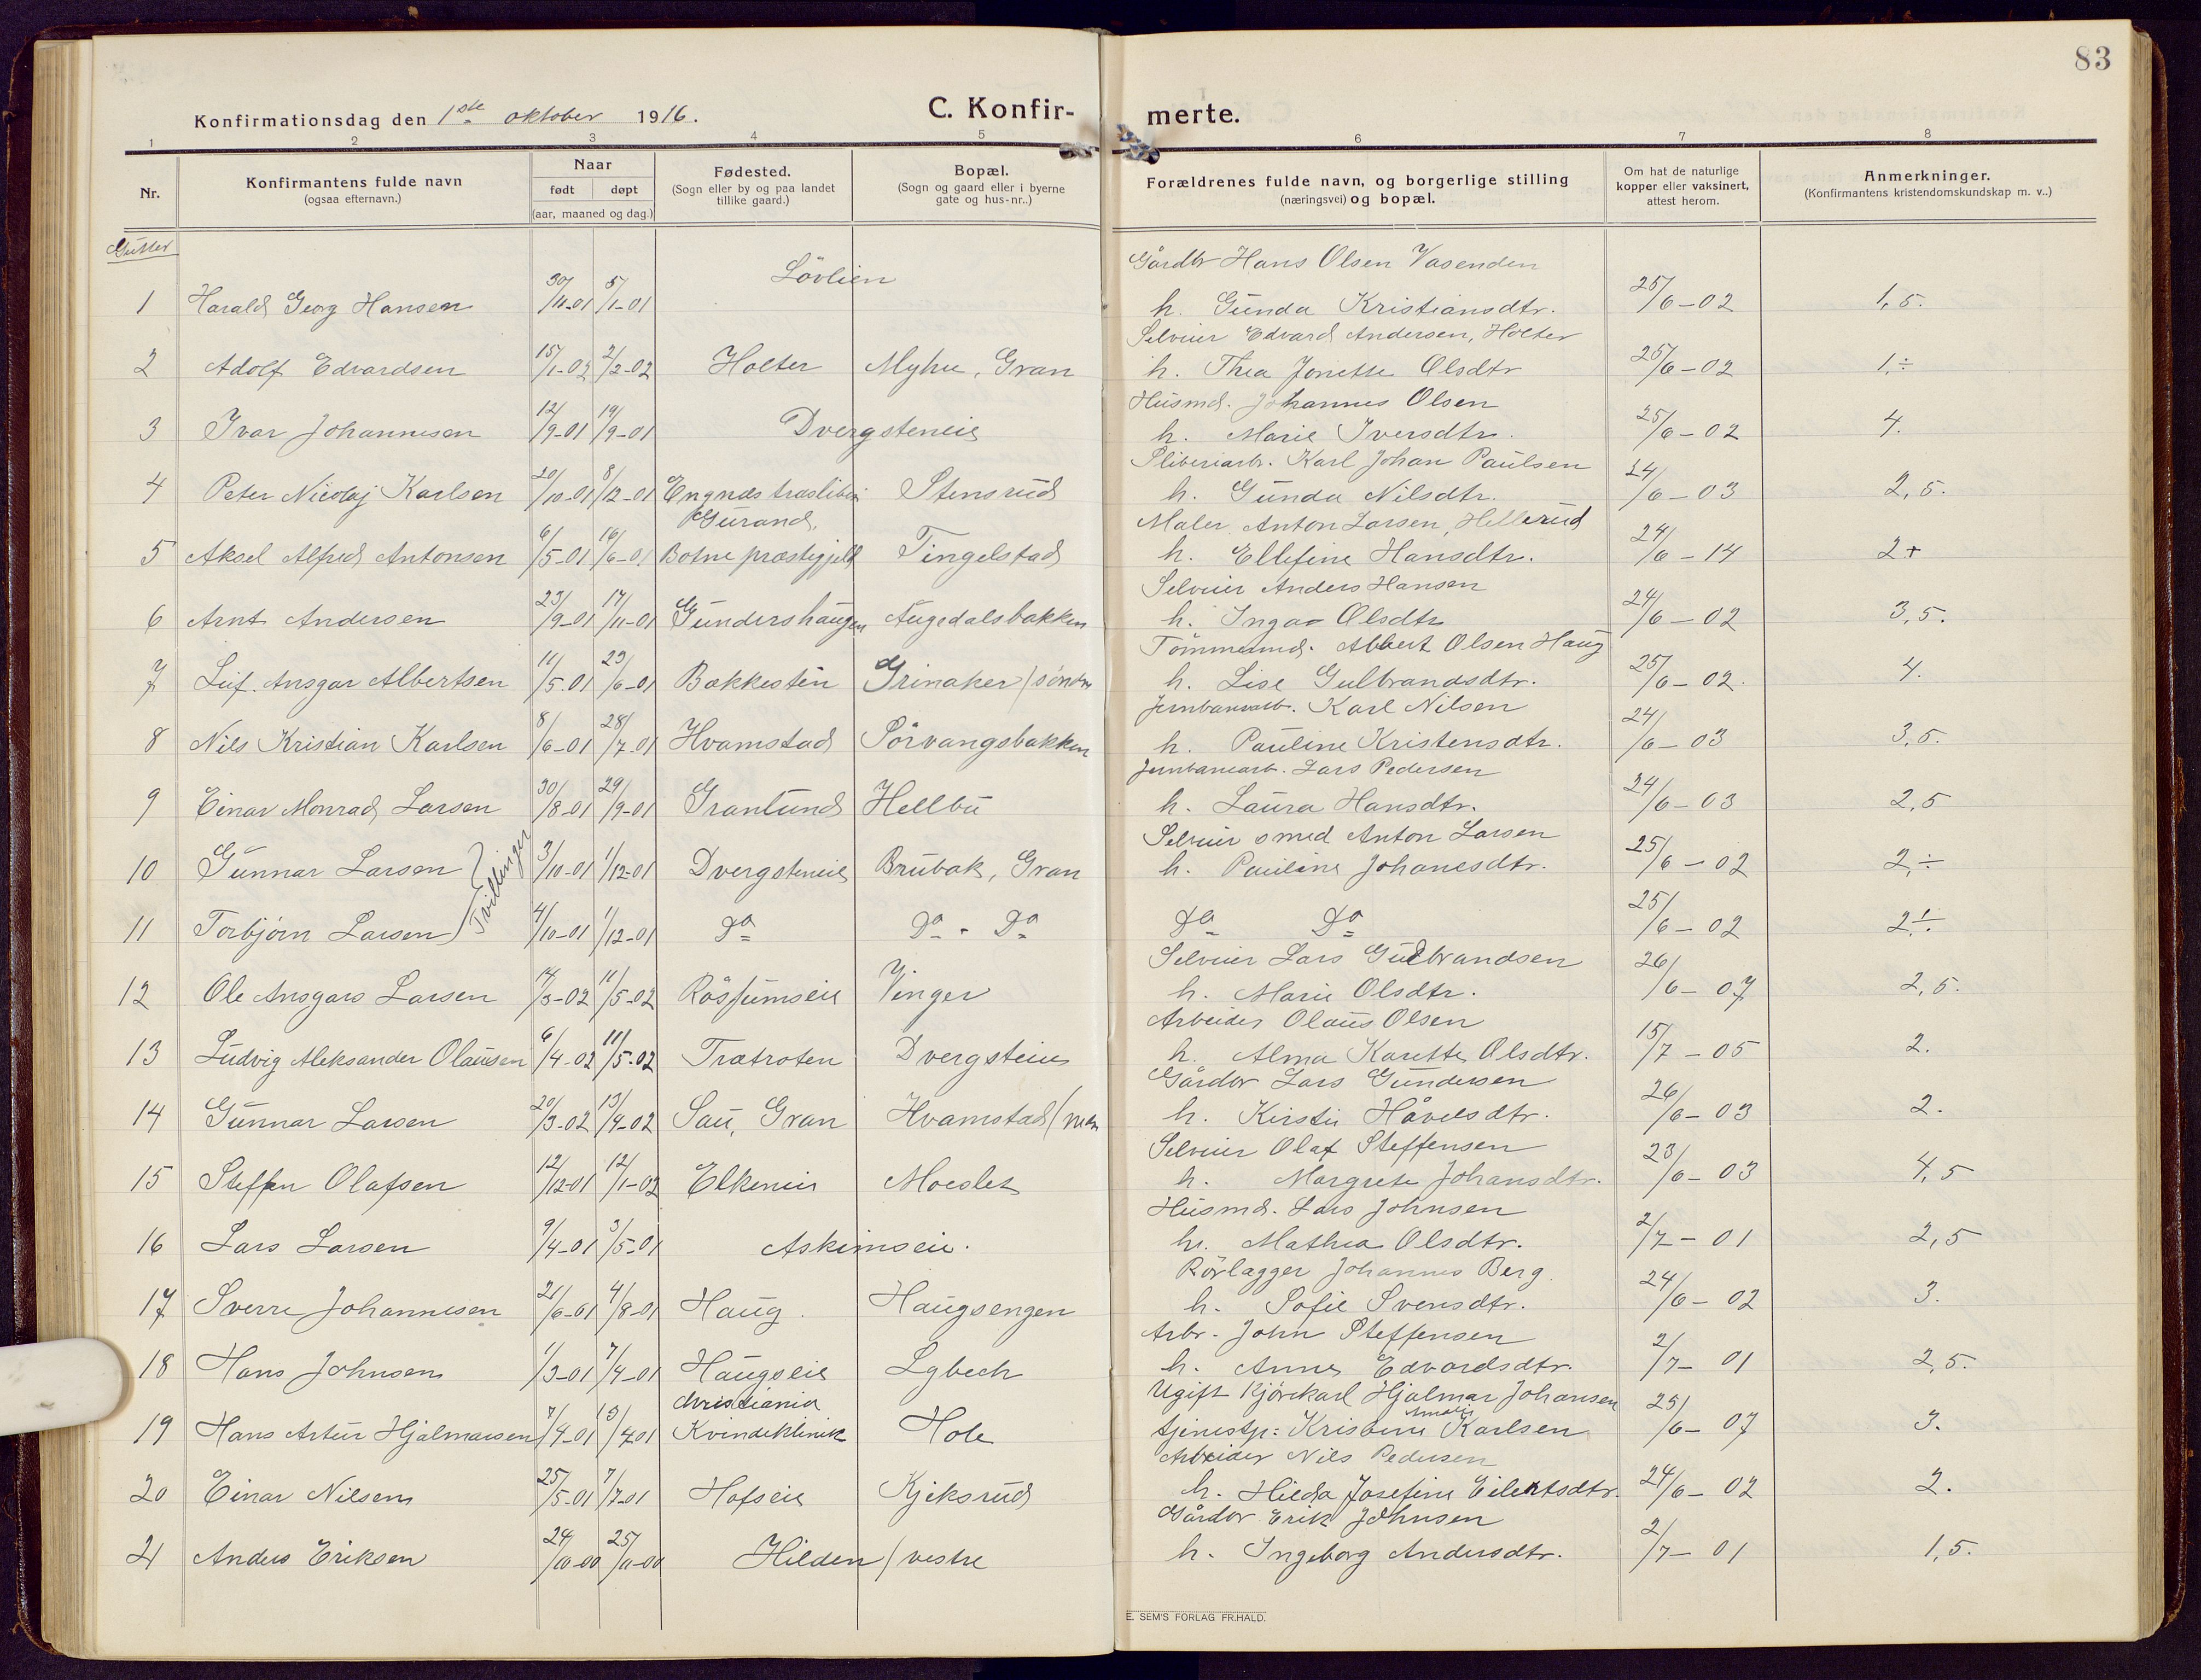 83
Konfirmationsdag den 1ste oktober 1916.
C. Konfir-
merte.
1 2 3 4 5 6 7 8
Nr.
Konfirmantens fulde navn
(ogsaa efternavn.)
Naar
født døpt
(aar, maaned og dag.)
Fødested.
(Sogn eller by og paa landet
tillike gaard.)
Bopæl.
(Sogn og gaard eller i byerne
gate og hus-nr..)
Forældrenes fulde navn, og borgerlige stilling
(næringsvei) og bopæl.
Om hat de naturlige
kopper eller vaksinert,
attest herom.
Anmerkninger.
(Konfirmantens kristendomskundskap m. v..)
Gutter
Gårdbr Hans Olsen Vasenden
1 Harald Georg Hansen 30/11-01 5/1-01 Lövlien h. Gunda Kristiansdtr. 25/6-02 1,5.
Selveier Edvard Andersen, Holter
2 Adolf Edvardsen 15/1-02 2/2-02 Holter Myhre, Gran h. Thea Jonette Olsdtr 25/6-02 1,÷
Husmd. Johannes Olsen
3 Ivar Johannesen 12/9-01 19/9-01 Dvergsteneie h. Marie Iversdtr. 25/6-02 4.
Sliberiarb. Karl Johan Paulsen
4 Peter Nicolaj Karlsen 20/10-01 8/12-01 Engnæs træsliberi Stensrud h. Gunda Nilsdtr. 24/6-03 2,5.
Maler Anton Larsen, Hellerud
5 Aksel Alfred Antonsen 6/5-01 16/6-01 Gurand, Botne præstegjeld Tingelstad h. Ellefine Hansdtr. 24/6-14 2+
Selveier Anders Hansen
6 Arnt Andersen 23/9-01 17/11-01 Gundershaugen Augedalsbakken h. Inga Olsdtr 24/6-02 3,5.
Tömmermd. Albert Olsen Haug
7 Leif Ansgar Albertsen 11/5-01 23/6-01 Bakkesten Grinaker/söndre h. Lise Gulbrandsdtr. 25/6-02. 4.
Jernbanearb. Karl Nilsen
8 Nils Kristian Karlsen 8/6-01 28/7-01 Hvamstad Sörvangsbakken h. Pauline Kristensdtr. 24/6-03 3,5.
Jernbanearb. Lars Pedersen
9 Einar Monrad Larsen 30/8-01 29/9-01 Granlund Hellbu h. Laura Hansdtr. 24/6-03 2,5
Selveier smed Anton Larsen
10 Gunnar Larsen Tvillinger 3/10-01 1/12-01 Dvergsteneie Brubak, Gran h. Pauline Johanesdtr. 25/6-02 2,÷
11 Torbjörn Larsen 4/10-01 1/12-01 Do Do - Do Do Do 25/6-02 2,÷
Selveier Lars Gulbrandsen
12 Ole Ansgars Larsen 17/3-02 11/5-02 Røssumseie Vinger h. Marie Olsdtr. 26/6-07 2,5.
Arbeider Olaus Olsen
13 Ludvig Aleksander Olausen 6/4-02 11/5-02 Trætroten Dvergsteins h. Alma Karette Olsdtr. 15/7-05 2.
Gårdbr Lars Gundersen
14 Gunnar Larsen 20/3-02 13/4-02 Sau, Gran Hvamstad/nedre h. Kirstie Håvelsdtr. 26/6-03 2.
Selveier Olaf Steffensen
15 Steffen Olafsen 12/12-01 12/1-02 Elkeneie Moeslet h. Margrete Johansdtr. 23/6-03 4,5
Husmd. Lars Johnsen
16 Lars Larsen 9/4-01 3/5-01 Askimseie. h. Mathea Olsdtr. 2/7-01 2,5
Rörlægger Johannes Berg.
17 Sverre Johannesen 21/6-01 4/8-01 Haug. Haugsengen h. Sofie Svensdtr. 24/6-02 3.
Arbr. John Steffensen
18 Hans Johnsen 1/3-01 7/4-01 Haugseie Lybeck h. Anne Edvardsdtr. 2/7-01 2,5.
Ugift Kjörekarl Hjalmar Johansen
19 Hans Artur Hjalmarsen 7/4-01 13/4-01 Christiania Kvindeklinik Hole tjenestp: Kristine Amalie Karlsen 25/6-07 3.
Arbeider Nils Pedersen
20 Einar Nilsen 25/5-01 7/7-01 Hofseie Kjeksrud h. Hilda Josefine Eilertsdtr. 24/6-02 2.
Gårdbr Erik Johnsen
21 Anders Eriksen 24/10-00 25/11-00 Hilden/vestre h. Ingeborg Andersdtr. 2/7-01 1,5.
E. SEM'S FORLAG FR.HALD.